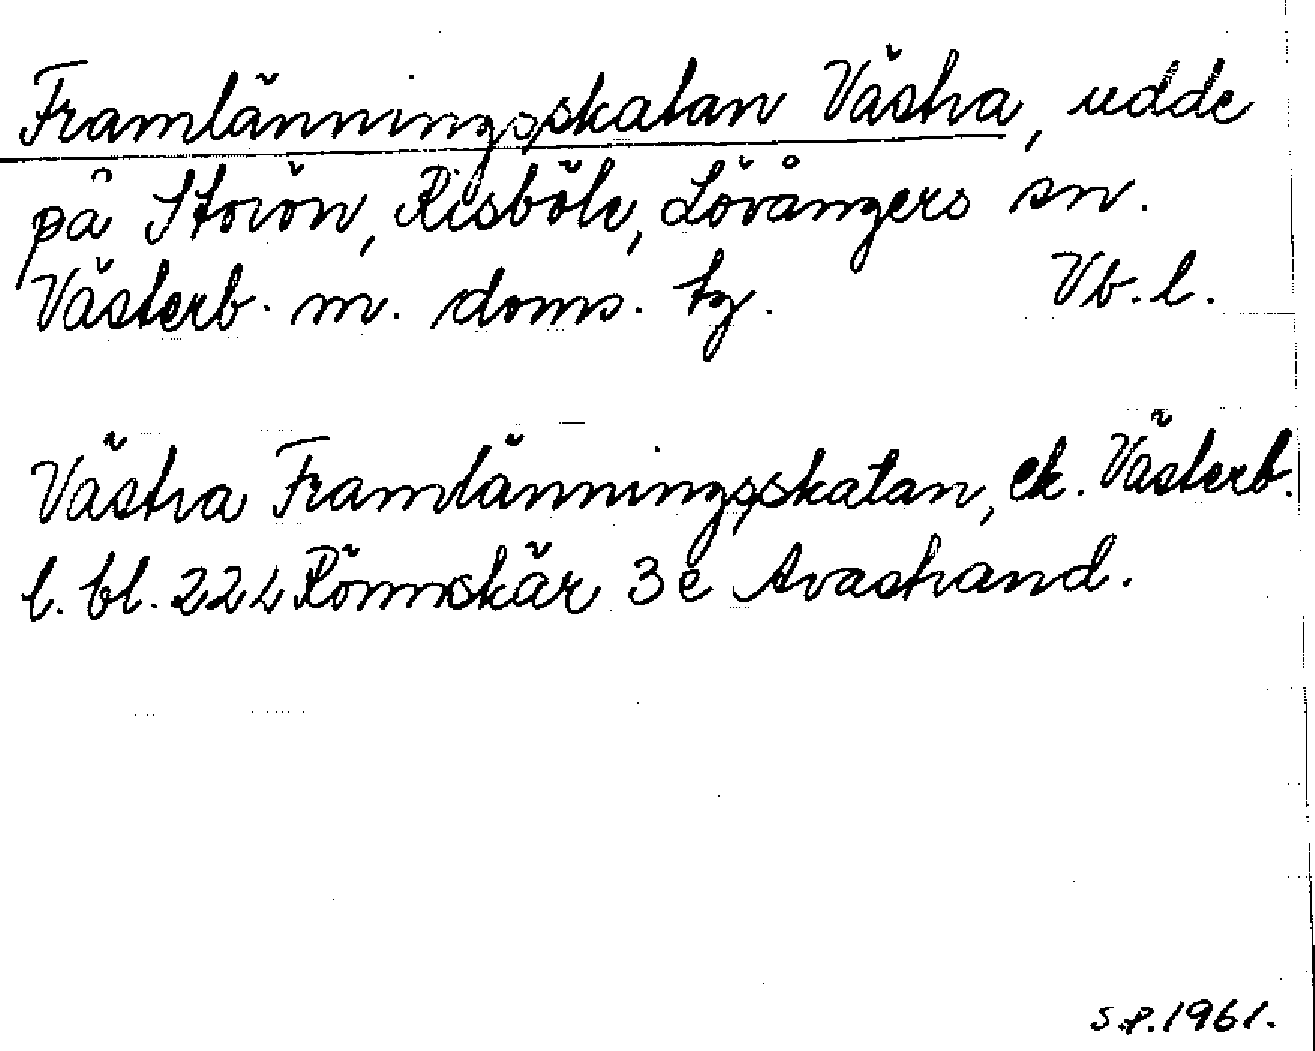 Framlänningsskatan Västra, udde
på Storön, Risböle, Lövångers sn.
Västerb. m. doms. tg. Vb. l.
Västra Framlänningsskatan, ek. Västerb.
l. bl. 224 Rönnskär 3e Avastrand.
S.P. 1961.